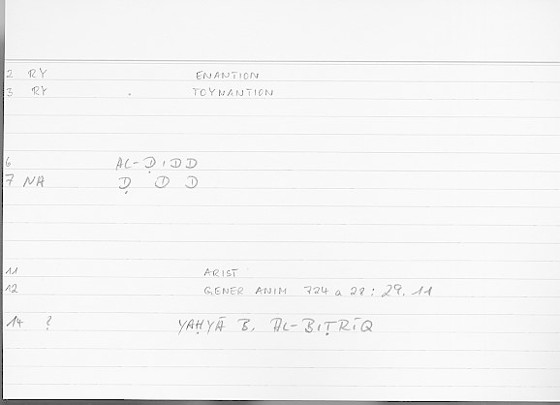 2 RY ENANTION
3 RY . TOYNANTION
6 AL-ḌIDD
7 NA Ḍ D D
11 ARIST
12 GENER ANIM 724 a 28 : 29, 11
14 ? YAḤYĀ B. AL-BIṬRĪQ